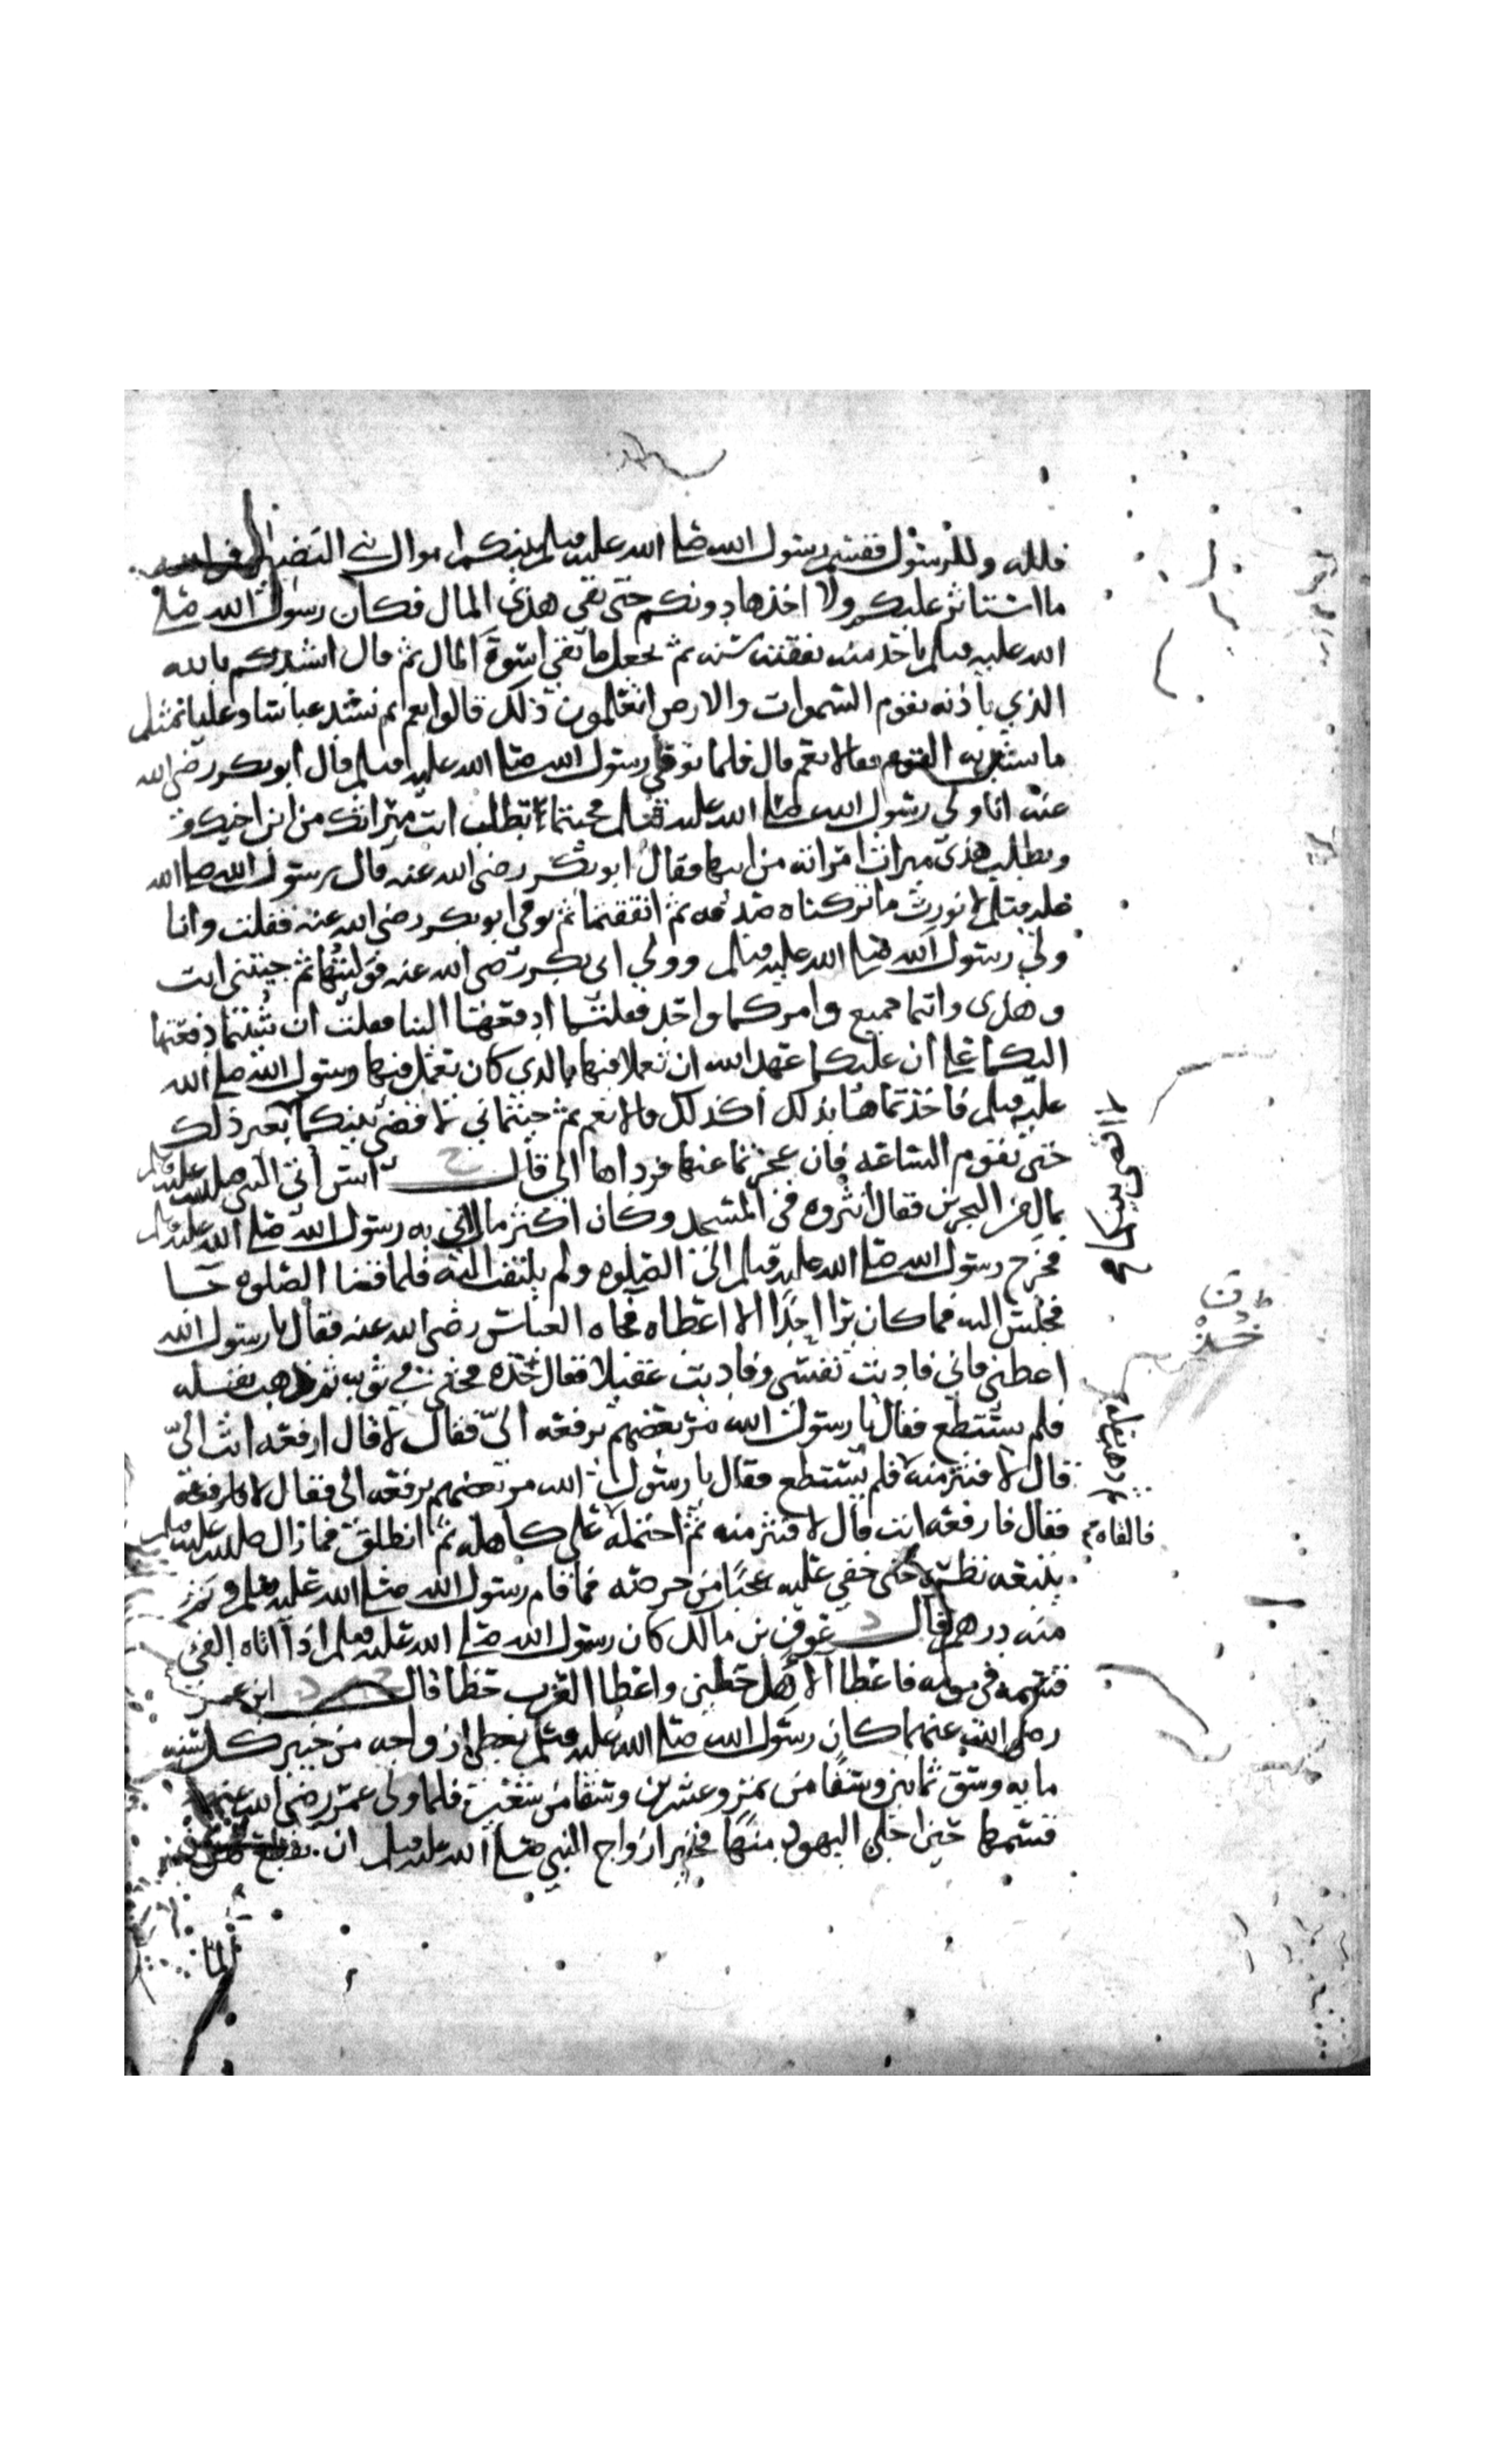 فلله وللرسول فقسم رسول الله صلى الله عليه وسلم بينكم اموال بني النضير فوالله
ما استاثر عليكم ولا اخذها دونكم حتى بقي هذى المال فكان رسول الله صلى
الله عليه وسلم ياخذ منه نفقته سنه ثم يجعل ما بقي اسوة المال ثم قال انشدكم بالله
الذي باذنه تقوم السموات والارض اتعلمون ذلك قالوا نعم ثم نشد عباسا وعليا بمثل
ما نشد به القوم قالا نعم قال فلما توفي رسول الله صلى الله عليه وسلم قال ابو بكر رضي الله
عنه انا ولي رسول الله صلى الله عليه وسلم فجئتما تطلب انت ميراثك من ابن اخيك
ويطلب هذى ميراث امراته من ابيها فقال ابو بكر رضي الله عنه قال رسول الله صلى الله
عليه وسلم لا نورث ما تركناه صدقه ثم اتفقتما ثم توفي ابو بكر رضي الله عنه فقلت وانا
ولي رسول الله صلى الله عليه وسلم وولي ابى بكر رضي الله عنه فوليتها ثم جيتني انت
وهذى وانتما جميع وامركما واحد فقلتما ادفعها الينا فقلت ان شئتما دفعتها
اليكما على ان عليكما عهد الله ان تعملا فيها بالذي كان يعمل فيها رسول الله صلى الله
عليه وسلم فاخذتماها بذلك اكذلك قالا نعم ثم جيتماني لاقضي بينكما بغير ذلك
حتى تقوم الساعه فان عجزتما عنها فرداها الي قال انس أتي النبي صلى الله عليه وسلم
بمال من البحرين فقال انثروه في المسجد وكان اكثر مال اتي به رسول الله صلى الله عليه وسلم
فخرج رسول الله صلى الله عليه وسلم الى الصلوه ولم يلتفت اليه فلما قضا الصلوه جا
فجلس اليه فما كان يرا احدا الا اعطاه فجاه العباس رضي الله عنه فقال يا رسول الله
اعطني فاني فاديت نفسي وفاديت عقيلا فقال خذه فحثى في ثوبه ثم ذهب يقله
فلم يستطع فقال يا رسول الله مر بعضهم يرفعه الىّ فقال لا قال ارفعه انت الىّ
قال لا فنثر منه فلم يستطع فقال يا رسول الله مر بعضهم يرفعه الى فقال لا
فقال فارفعه انت قال لا فنثر منه ثم احتمله على كاهله ثم انطلق فما زال صلى الله عليه وسلم
يتبعه نظره حتى خفي عليه عجبا من حرصه فما قام رسول الله صلى الله عليه وسلم وثم
منه درهم قال عوف بن مالك كان رسول الله صلى الله عليه وسلم اذا اتاه الفي
قسمه في يومه فاعطا الاهل حظين واعطا العزب حظا قال ابن عمر
رضي الله عنهما كان رسول الله صلى الله عليه وسلم يعطي ازواجه من خيبر كل سنه
مايه وسق ثمانين وسقا من تمر وعشرين وسقا من شعير فلما ولى عمر رضي الله عنه
قسمها حين اجلى اليهود منها فخير ازواج النبي صلى الله عليه وسلم ان يقطع لهن
خذ
فالقاه